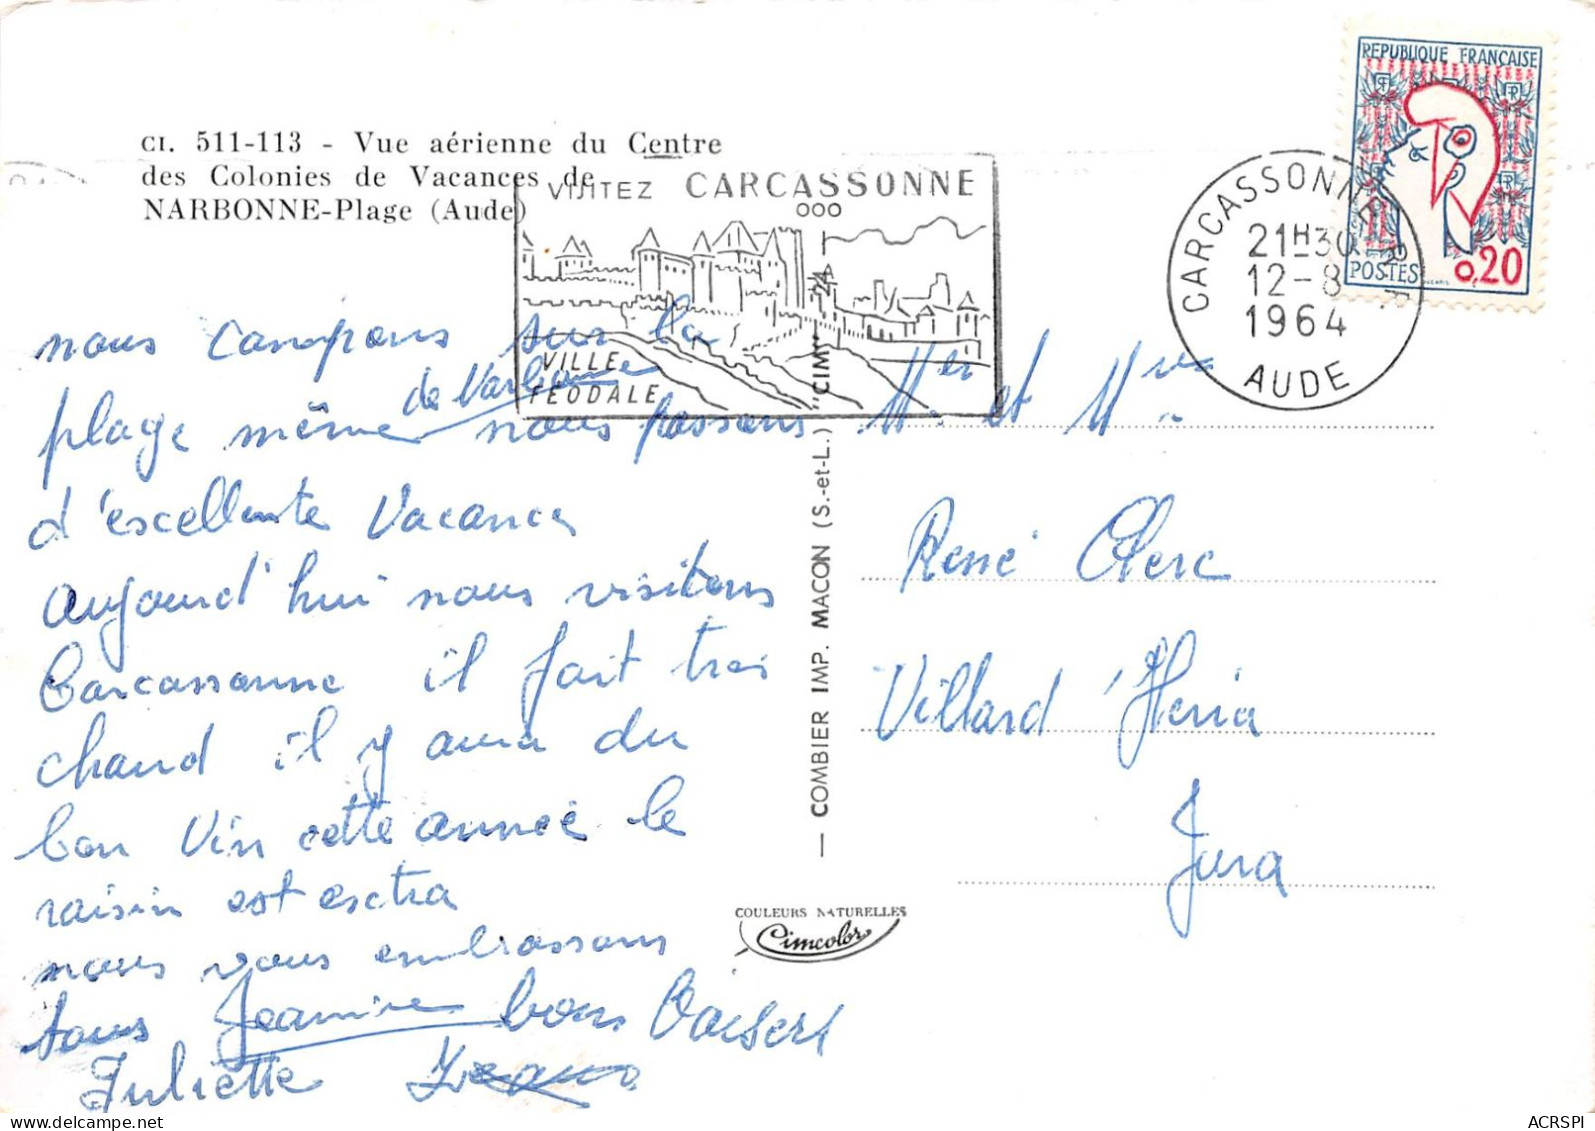 CI. 511-113 - Vue aérienne du Centre
des Colonies de Vacances de
NARBONNE-Plage (Aude)
VISITEZ CARCASSONNE
VILLE
FEODALE
CARCASSONNE R.P.
21H30
12-8
1964
AUDE
REPUBLIQUE FRANÇAISE
POSTES 0,20
nous campons sur la
plage même de Narbonne nous passons
d'escellente Vacances
aujourd'hui nous visitons
Carcassonne il fait tres
chaud il y aura du
bon Vin cette année le
raisin est esctra
nous vous embrassons
tous Jeannine bons Baisers
Juliette
COMBIER IMP. MACON (S.-et-L.) "CIM"
COULEURS NATURELLES
Cimcolor
Mr et Mme
René Clerc
Villard d'Heria
Jura
ACRSPI
delcampe.net